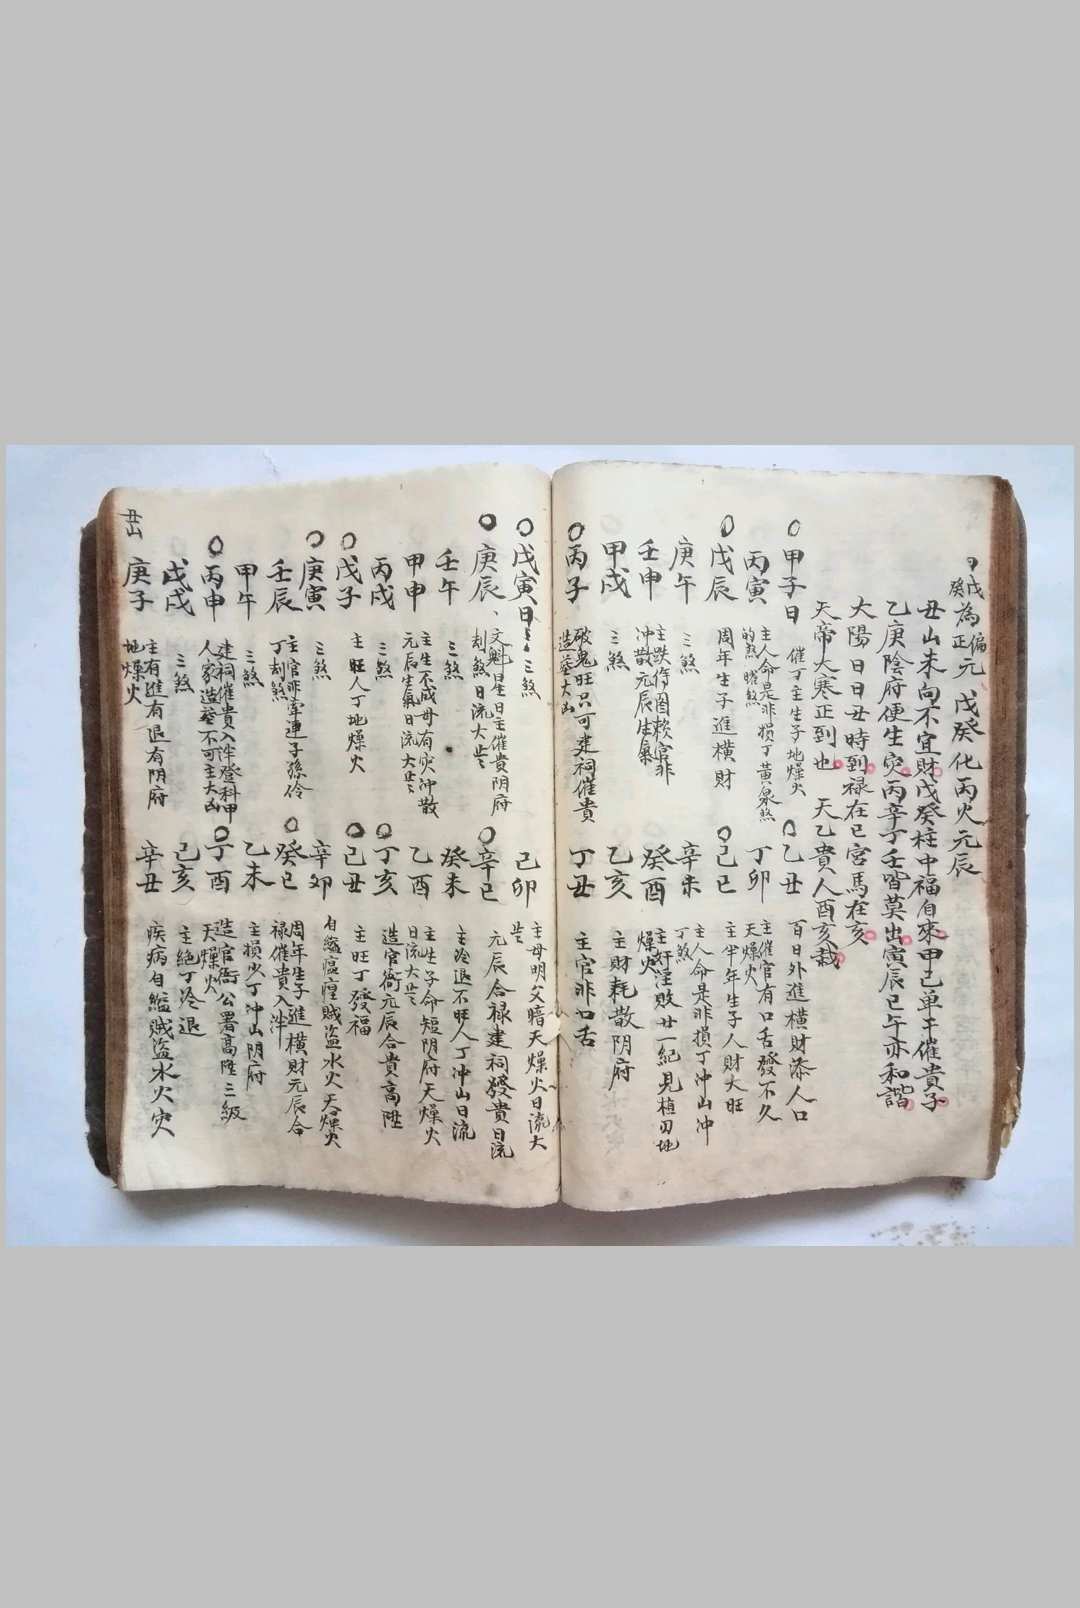 戊癸為偏正元戊癸化丙火元辰
丑山未向不宜財戊癸柱中福自來甲己单干催貴子
乙庚陰府便生灾丙辛丁壬皆莫出寅辰巳午亦和諧
太陽日日丑時到禄在巳宮馬在亥
天帝大寒正到也 天乙貴人酉亥裁
甲子日 催丁主生子地燥火
乙丑 百日外進横財添人口
丙寅 主人命是非損丁黄泉煞的煞暗煞
丁卯 主催官有口舌發不久天燥火
戊辰 周年生子進横財
己巳 主半年生子人財大旺
庚午 三煞
辛未 主人命是非損丁沖山沖丁煞
壬申 主跌傷圖賴官非沖散元辰生氣
癸酉 主奸淫敗廿一紀見植田地燥火
甲戌 三煞
乙亥 主財耗散阴府
丙子 破鬼旺只可建祠催貴造葬大凶
丁丑 主官非口舌
戊寅日 三煞
己卯 主母明父暗天燥火日流大
庚辰 文魁星日主催貴阴府刦煞日流大
辛巳 元辰合禄建祠發貴日流
壬午 三煞
癸未 主冷退不旺人丁沖山日流
甲申 主生不成毋有灾沖散元辰生氣日流大
乙酉 主生子命短阴府天燥火日流大
丙戌 三煞
丁亥 造官衙元辰合貴高陞
戊子 主旺人丁地燥火
己丑 主旺丁發福
庚寅 三煞
辛卯 自縊瘟瘟賊盗水火天燥火
壬辰 主官非牽連子孫伶丁刦煞
癸巳 周年生子進横財元辰合禄催貴入泮
甲午 三煞
乙未 主損少丁沖山阴府
丙申 建祠催貴入泮登科甲人家造葬不可主大凶
丁酉 造官衙公署高陞三級天燥火
戊戌 三煞
己亥 主絶丁冷退
庚子 主有進有退有阴府地燥火
辛丑 疾病自縊賊盗水火灾
丑山